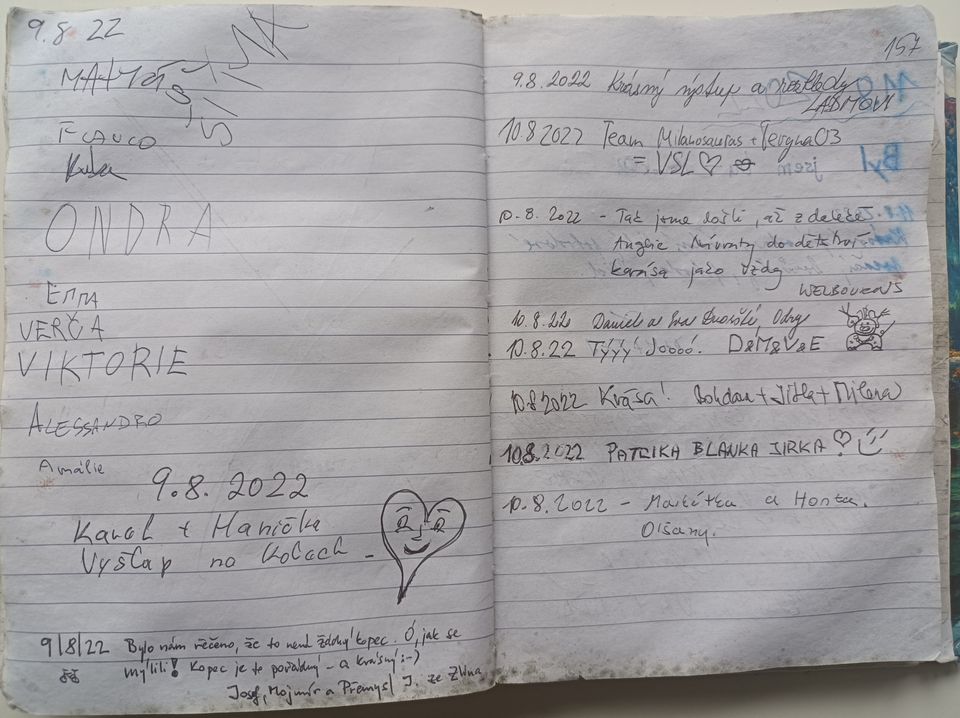 9.8 22
MATYÁŠ
ŠTIKA
FLAVCO
Kuba
ONDRA
EMMA
VERČA
VIKTORIE
ALESSANDRO
Amálie
9.8. 2022
Karel + Hanička
Vyšlap na kolach -
9/8/22 Bylo nám řečeno, že to není žádný kopec. Ó, jak se
mýlili! Kopec je to pořádný - a krásný :-)
Josef, Mojmír a Přemysl J. ze Zlína
157
9.8.2022 Krásný výstup a
10.8 2022 Team Milanosauras +
= VSL♡
10.8.2022 - Tak jsme došli, až z daleké
Anglie Návraty do dětství
krása jako vždy
WELBOURNS
10.8.22 Daniel a Odry
10.8.22 Týýý Joooó. D&M&V&E
10.8 2022 Krása! Bohdan + Jitka + Milena
10.8.2022 PATRIKA BLANKA JIRKA ♡
10.8.2022 - Markétka a Honza.
Olšany.